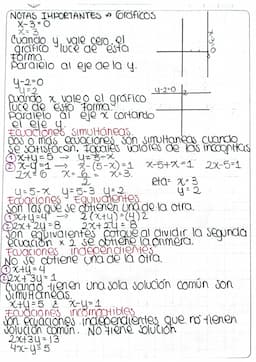 NOTAS IMPORTANTES → GRÁFICOS
x-3=0
x=3
Cuando y vale cero el
gráfico luce de esta
forma.
Paralelo al eje de la y.
y-2=0
y=2
y-2=0
Cuando x vale 0 el gráfico
luce de esta forma.
Paralelo al eje x cortando
el eje y.
Ecuaciones simultáneas
Dos o más ecuaciones son simultáneas cuando
se satisfacen. Iguales valores de las incógnitas
① x+y=5 → y=5-x
② x-y=1 → x-(5-x)=1 x-5+x=1 2x-5=1
2x=6 x=6 x=3.
y=5-x y=5-3 y=2 x=3
y=2
Ecuaciones Equivalentes
Son las que se obtienen una de la otra.
① x+y=4 → 2(x+y)=(4)2
② 2x+2y=8 2x+2y=8
Son equivalentes porque al dividir la segunda
ecuación x 2 se obtiene la primera.
Ecuaciones independientes
No se obtiene una de la otra.
① x+y=4
② 2x+3y=1
Cuando tienen una sola solución común son
simultáneas.
x+y=5 x-y=1
Ecuaciones incompatibles
Son ecuaciones independientes que no tienen
solución común. No tiene solución
2x+3y=13
4x-y=5